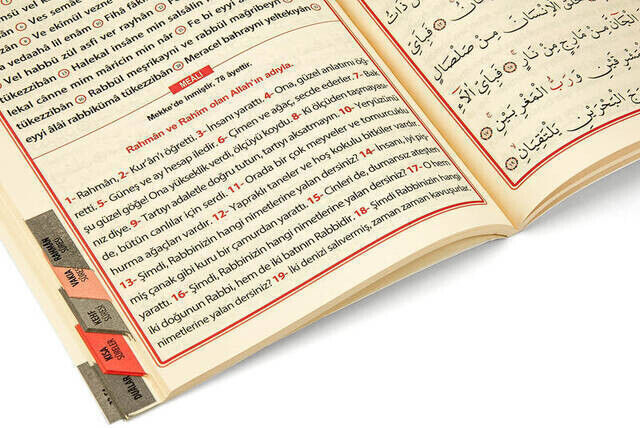 Ves semae
Ve ekîmul vezne
vedaahâ lil enâm Fîhâ fâkih
Vel habbü zül asfi ver reyhân Fe bi eyyi
tükezzibân Halekal insâne min salsâlin
lekal cânne mim mâricin min nâr
tükezzibân Rabbül meşrikayni ve rabbül
eyyi âlâi rabbikümâ tükezzibân Meracel bahrayni yeltekıyân
MEALİ
Mekke'de inmiştir. 78 âyettir.
Rahmân ve Rahîm olan Allah'ın adıyla.
1- Rahmân, 2- Kur'ân'ı öğretti. 3- İnsanı yarattı. 4- Ona, güzel anlatımı öğ-
retti. 5- Güneş ve ay hesap iledir. 6- Çimen ve ağaç, secde ederler. 7- Bak
şu güzel göğe! Ona yükseklik verdi, ölçüyü koydu. 8- Ki ölçüden taşmaya-
nız diye. 9- Tartıyı adaletle doğru tutun, tartıyı aksatmayın. 10- Yeryüzünü
de, bütün canlılar için serdi. 11- Orada bir çok meyveler ve tomurcuklu
hurma ağaçları vardır. 12- Yapraklı taneler ve hoş kokulu bitkiler vardır.
13- Şimdi, Rabbinizin hangi nimetlerine yalan dersiniz? 14- İnsanı, iyi piş-
miş çanak gibi kuru bir çamurdan yarattı. 15- Cinleri de, dumansız ateşten
yarattı. 16- Şimdi, Rabbinizin hangi nimetlerine yalan dersiniz? 17- O hem
iki doğunun Rabbi, hem de iki batının Rabbidir. 18- Şimdi Rabbinizin hangi
nimetlerine yalan dersiniz? 19- İki denizi salıvermiş, zaman zaman kavuşurlar.
RAHMAN SÛRESİ
VAKIA SÛRESİ
KEHF SÛRESİ
KISA SÛRELER
DUALAR
الْإِنْسَانَ مِنْ صَلْصَالٍ
مِنْ مَارِجٍ مِنْ نَارٍ فَبِأَيِّ آلَاءِ
وَرَبُّ الْمَغْرِبَيْنِ
الْبَحْرَيْنِ يَلْتَقِيَانِ